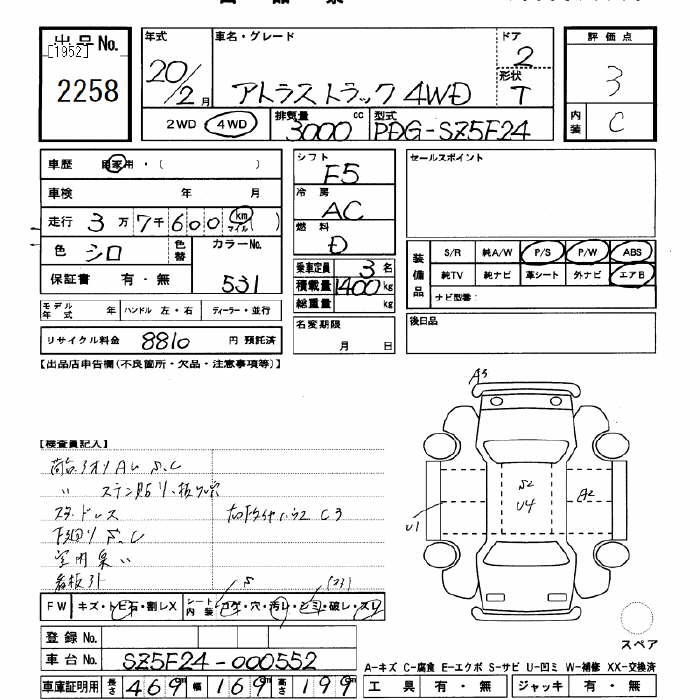 出品No.
[1952]
2258
年式
20/2月
車名・グレード
アトラストラック 4WD
ドア
2
形状
T
評価点
3
内装
C
2WD 4WD
排気量 cc
3000
型式
PDG-SZ5F24
車歴 自家用・( )
車検 年 月
走行 3万7千600 km マイル( )
色 シロ
色替
カラーNo.
531
保証書 有・無
モデル年式 年 ハンドル 左・右 ディーラー・並行
リサイクル料金 8810 円 預託済
シフト
F5
冷房
AC
燃料
D
乗車定員 3 名
積載量 1400 kg
総重量 kg
名変期限
月 日
セールスポイント
装備品
S/R 純A/W P/S P/W ABS
純TV 純ナビ 革シート 外ナビ エアB
ナビ型番:
後日品
【出品店申告欄(不良箇所・欠品・注意事項等)】
【検査員記入】
荷台アオリ A U S.C
〃 ステン貼り、板ワレ
スタッドレス
下回り S.C
室内臭い
看板引
A3
S2
U4
A2
U1
S
FW キズ・トビ石・割レX
シート内装 コゲ・穴・汚レ・シミ・破レ・スレ
スペア
登録No.
車台No. SZ5F24-000552
車庫証明用 長さ 469cm 幅 169cm 高さ 199cm
A-キズ C-腐食 E-エクボ S-サビ U-凹ミ W-補修 XX-交換済
工具 有・無 ジャッキ 有・無